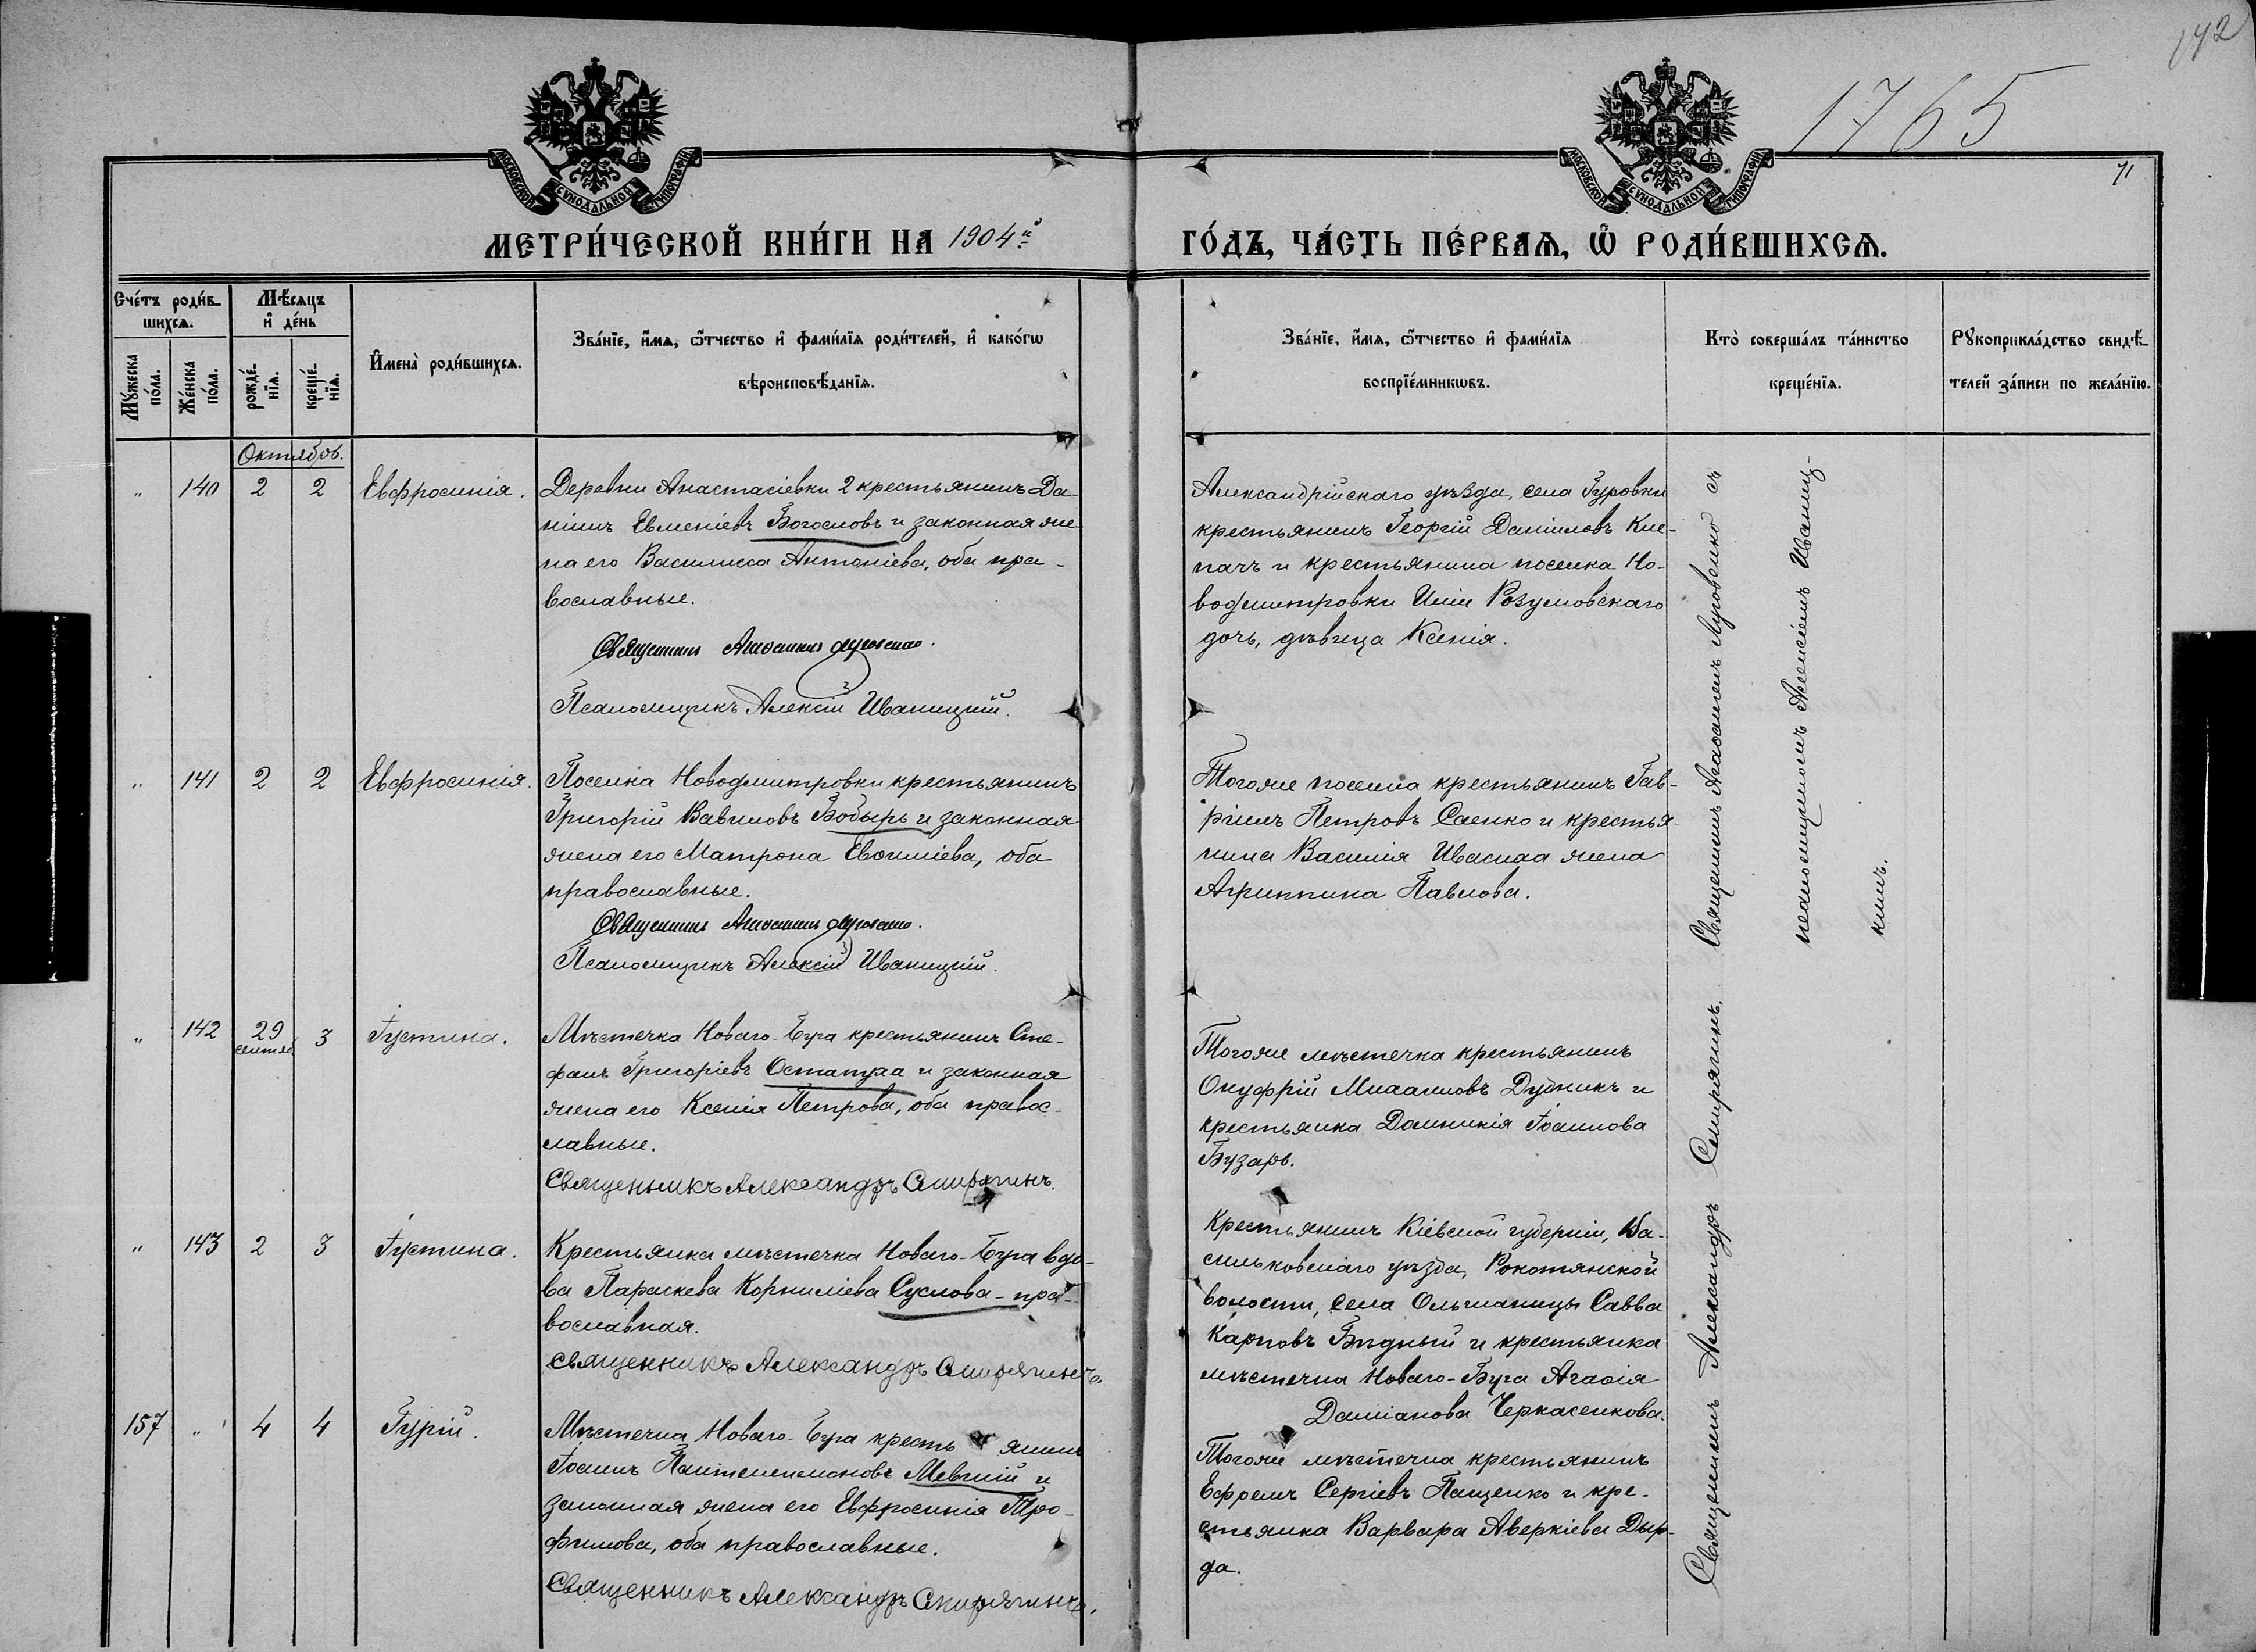 142
1765
71
МОСКОВСКОЙ СѴНОДАЛЬНОЙ ТИПОГРАФІИ
МОСКОВСКОЙ СѴНОДАЛЬНОЙ ТИПОГРАФІИ
МЕТРИ́ЧЕСКОЙ КНИ́ГИ НА 1904й
ГО́ДЪ, ЧА́СТЬ ПЕ́РВАѦ, Ѡ҆ РОДИ́ВШИХСѦ.
Сче́тъ роди́в-
шихсѧ.
Мꙋ́жеска
по́ла.
Же́нска
по́ла.
Мѣ́сѧцъ
и҆ де́нь
рожде́-
нїѧ.
креще́-
нїѧ.
И҆мена̀ роди́вшихсѧ.
Зва́нїе, и҆́мѧ, ѻ҆́тчество и҆ фами́лїѧ роди́телей, и҆ како́гѡ
вѣроисповѣ́данїѧ.
Зва́нїе, и҆́мѧ, ѻ҆́тчество и҆ фами́лїѧ
воспрїе́мникѡвъ.
Кто̀ соверша́лъ та́инство
креще́нїѧ.
Рꙋкоприкла́дство свидѣ́-
телей за́писи по жела́нїю.
Октябрь.
" 140 2 2 Евфросинія.
Деревни Анастасіевки 2 крестьянинъ Да-
ніилъ Евменіевъ Богословъ и законная же
на его Василисса Антоніева, оба пра-
вославные.
Священникъ Агаѳангелъ Муровенко.
Псаломщикъ Алексій Иваницкій.
Александрійскаго уѣзда, села Гуровки
крестьянинъ Георгій Даніиловъ Кле-
пачъ и крестьянина поселка Но-
водмитровки Иліи Розумовскаго
дочь, дѣвица Ксенія.
" 141 2 2 Евфросинія.
Поселка Новодмитровки крестьянинъ
Григорій Вавиловъ Бобырь и законная
жена его Матрона Евѳиміева, оба
православные.
Священникъ Агаѳангелъ Муровенко.
Псаломщикъ Алексій Иваницкій.
Тогоже поселка крестьянинъ Гав-
ріилъ Петровъ Саенко и крестья
нина Василія Ивасика жена
Агриппина Павлова.
" 142 29 сентяб. 3 Іустина.
Мѣстечка Новаго-Буга крестьянинъ Сте-
фанъ Григоріевъ Остапуха и законная
жена его Ксенія Петрова, оба правос-
лавные.
Священникъ Александръ Смирягинъ.
Тогоже мѣстечка крестьянинъ
Онуфрій Михаиловъ Дудникъ и
крестьянка Домникія Іоаннова
Бузарь.
" 143 2 3 Іустина.
Крестьянка мѣстечка Новаго-Буга вдо-
ва Параскева Корниліева Суслова-пра-
вославная.
Священникъ Александръ Смирягинъ.
Крестьянинъ Кіевской губерніи, Ва-
сильковскаго уѣзда, Рокотянской
волости, села Ольшаницы Савва
Карповъ Бѣдный и крестьянка
мѣстечка Новаго-Буга Агаѳія
Даміанова Черкасенкова.
157 " 4 4 Гурій.
Мѣстечка Новаго-Буга кресть янинъ
Іоаннъ Пантелеимоновъ Мевшій и
законная жена его Евфросинія Тро-
фимова, оба православные.
Священникъ Александръ Смирягинъ.
Тогоже мѣстечка крестьянинъ
Ефремъ Сергіевъ Пащенко и кре-
стьянка Варвара Аверкіева Дыр-
да.
Священникъ Агаѳангелъ Муровенко съ
псаломщикомъ Алексіемъ Иваниц-
кимъ.
Священникъ Александръ Смирягинъ.